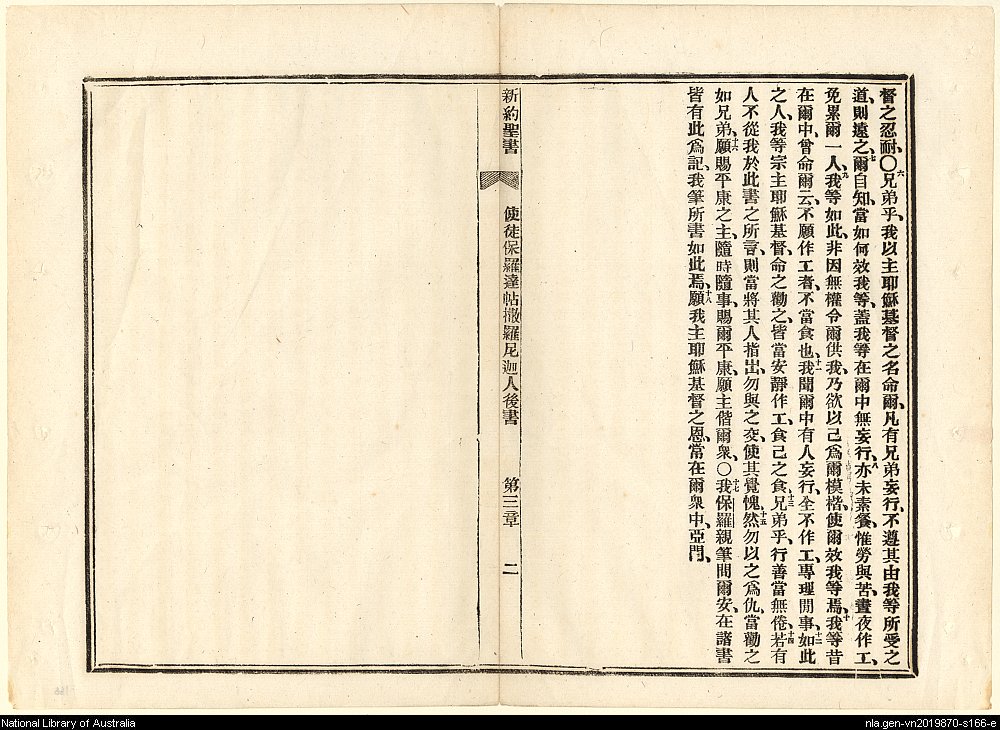 督之忍耐、〇六兄弟乎、我以主耶穌基督之名命爾、凡有兄弟妄行、不遵其由我等所受之
道、則遠之、七爾自知、當如何效我等、蓋我等在爾中無妄行、八亦未素餐、惟勞與苦、晝夜作工、
免累爾一人、九我等如此、非因無權令爾供我、乃欲以己爲爾模楷、使爾效我等焉、十我等昔
在爾中、曾命爾云、不願作工者、不當食也、十一我聞爾中有人妄行、全不作工、專理閒事、十二如此
之人、我等宗主耶穌基督、命之勸之、皆當安靜作工、食己之食、十三兄弟乎、行善當無倦、十四若有
人不從我於此書之所言、則當將其人指出、勿與之交、使其覺愧、十五然勿以之爲仇、當勸之
如兄弟、十六願賜平康之主、隨時隨事、賜爾平康、願主偕爾衆、〇十七我保羅親筆問爾安、在諸書
皆有此爲記、我筆所書如此焉、十八願我主耶穌基督之恩、常在爾衆中、亞門、
新約聖書 使徒保羅達帖撒羅尼迦人後書 第三章 二
National Library of Australia
nla.gen-vn2019870-s166-e